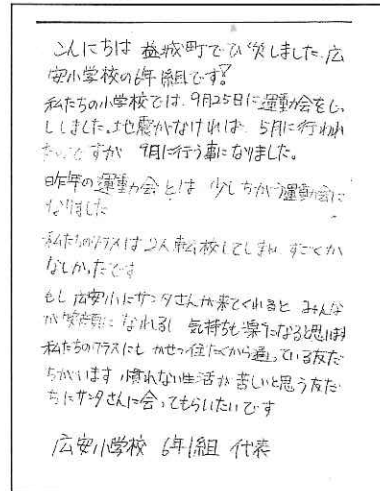 こんにちは 益城町でひ災しました 広
安小学校の6年1組です。
私たちの小学校では、9月25日に運動会をし
ました。地震がなければ 5月に行われ
ですが 9月に行う事になりました。
昨年の運動会とは 少しちがう運動会に
なりました
私たちのクラスは2人転校してしまい すごくか
なしかったです
もし広安小にサンタさんが来てくれると みんな
が笑顔になれるし 気持ちも楽になると思います
私たちのクラスにも かせつ住たくから通っている友だ
ちがいます 慣れない生活が苦しいと思う友だ
ちにサンタさんに会ってもらいたいです
広安小学校 6年1組 代表